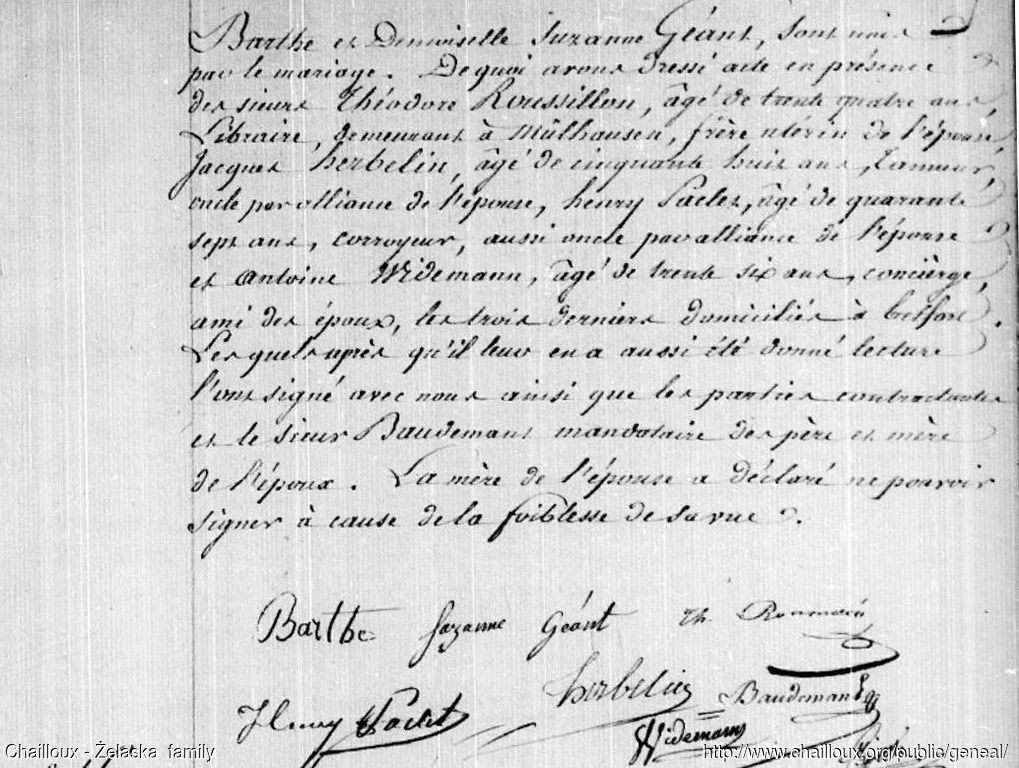 Barthe et Demoiselle Suzanne Géant, sont unis
par le mariage. De quoi avons dressé acte en présence
des sieurs Théodore Roussillon, âgé de trente quatre ans,
Libraire, demeurant à Mülhausen, frère utérin de l'épouse,
Jacques herbelin, âgé de cinquante huit ans, tanneur,
oncle par alliance de l'épouse, henry Paclet, âgé de quarante
sept ans, corroyeur, aussi oncle par alliance de l'épouse
et antoine Widemann, âgé de trente six ans, concierge,
ami des époux, les trois derniers domiciliés à belfort.
Lesquels après qu'il leur en a aussi été donné lecture
l'ont signé avec nous ainsi que les parties contractantes
et le sieur Baudemant mandataire des père et mère
de l'époux. La mère de l'épouse a déclaré ne pouvoir
signer à cause de la foiblesse de sa vue.
Barthe Suzanne Géant Th
herbelin Baudemant
Henry Paclet
Widemann
Chailloux - Żelaska family http://www.chailloux.org/public/geneal/